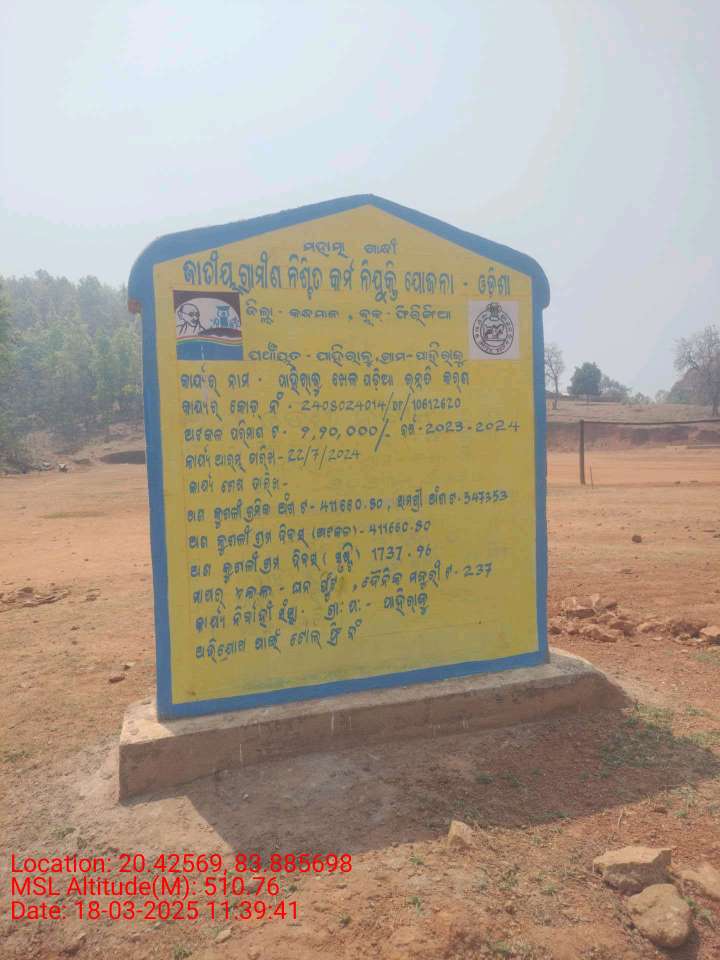 ମହାତ୍ମା ଗାନ୍ଧୀ
ଜାତୀୟ ଗ୍ରାମୀଣ ନିଶ୍ଚିତ କର୍ମ ନିଯୁକ୍ତି ଯୋଜନା - ଓଡ଼ିଶା
ଜିଲ୍ଲା - କନ୍ଧମାଳ , ବ୍ଲକ - ଫିରିଙ୍ଗିଆ
ପଞ୍ଚାୟତ - ପାହିରାଜୁ , ଗ୍ରାମ - ପାହିରାଜୁ
କାର୍ଯ୍ୟର ନାମ - ପାହିରାଜୁ ଖେଳ ପଡ଼ିଆ ଉନ୍ନତି କରଣ
କାର୍ଯ୍ୟର କୋଡ଼ ନଂ - 2408024014/DP/10612620
ଅଟକଳ ପରିମାଣ ଟ - ୨,୨୦,୦୦୦/- ବର୍ଷ - 2023-2024
କାର୍ଯ୍ୟ ଆରମ୍ଭ ତାରିଖ - 22/7/2024
କାର୍ଯ୍ୟ ଶେଷ ତାରିଖ -
ଅଣ କୁଶଳୀ ଶ୍ରମିକ ଅଂଶ ଟ - 411660.80 , ସାମଗ୍ରୀ ଅଂଶ ଟ - 547353
ଅଣ କୁଶଳୀ ଶ୍ରମ ଦିବସ (ଅଟକଳ) - 411660.80
ଅଣ କୁଶଳୀ ଶ୍ରମ ଦିବସ (ସୃଷ୍ଟି) 1737.96
ମାପର - ଘନ ଫୁଟ , ଦୈନିକ ମଜୁରୀ ଟ - 237
କାର୍ଯ୍ୟ ନିର୍ବାହୀ ସଂସ୍ଥା - ଗ୍ରା: ପ: - ପାହିରାଜୁ
ଅଭିଯୋଗ ପାଇଁ ଟୋଲ୍ ଫ୍ରି ନଂ
Location: 20.42569, 83.885698
MSL Altitude(M): 510.76
Date: 18-03-2025 11:39:41